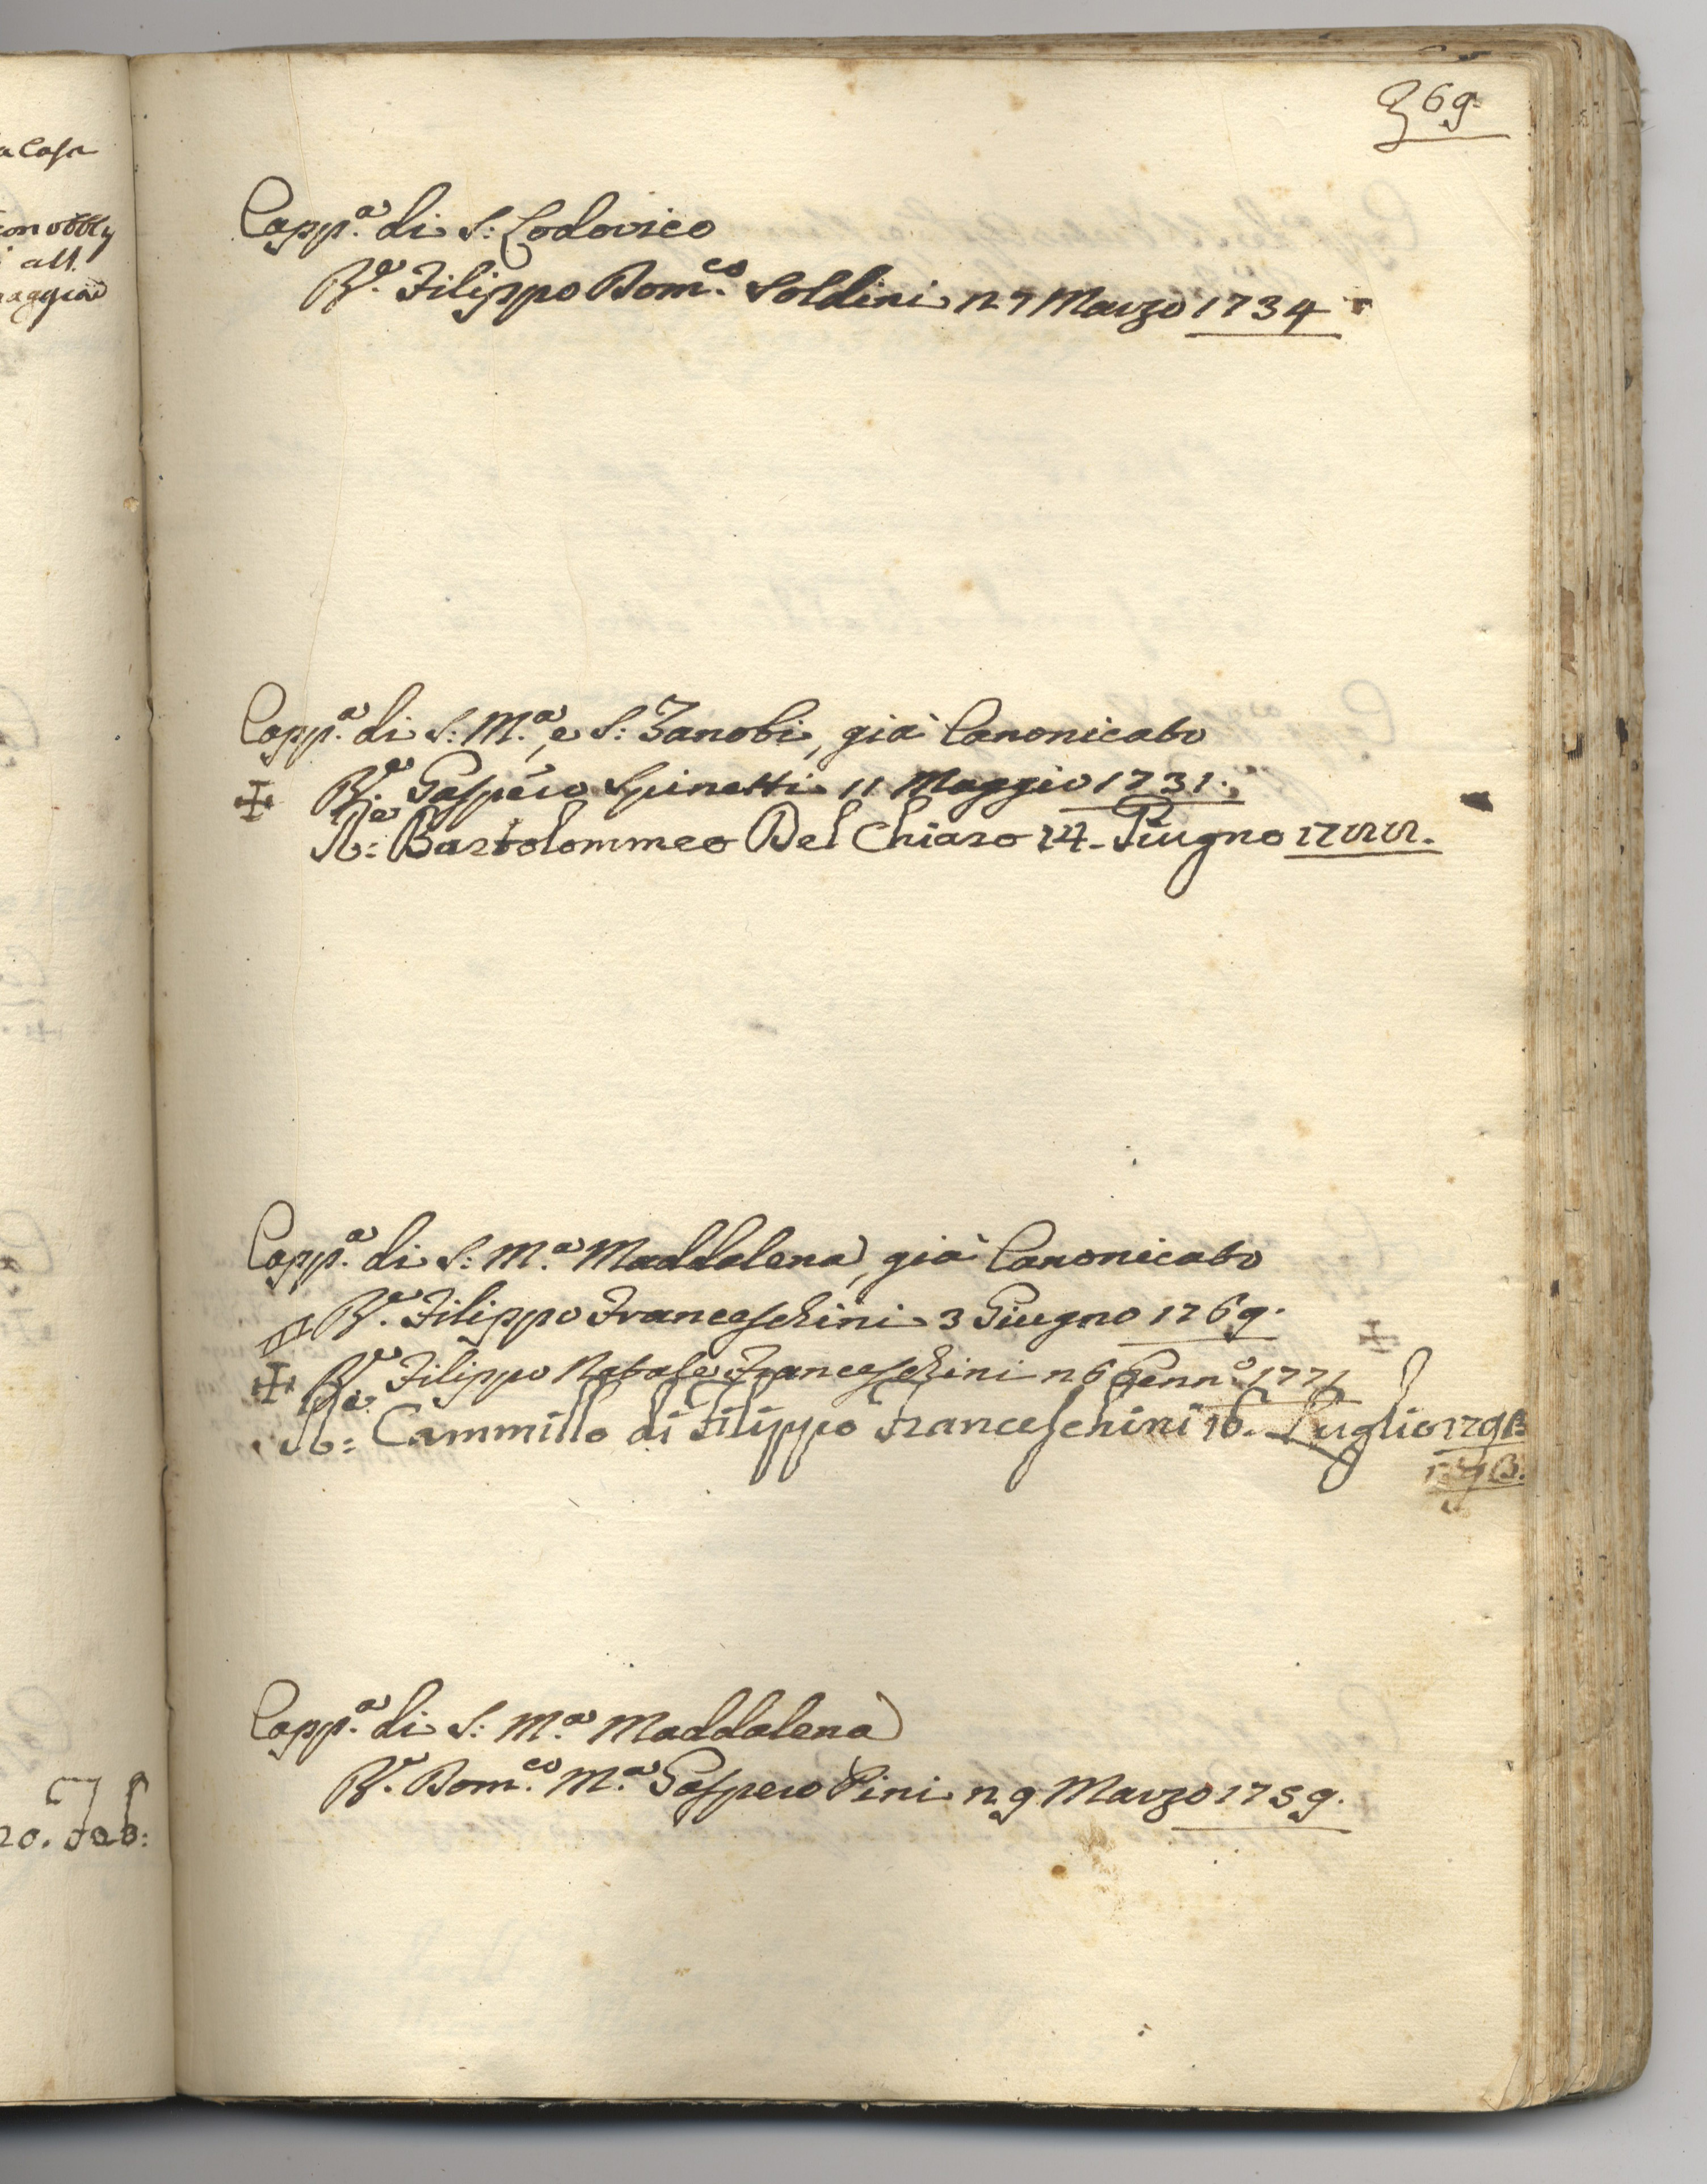 369.
a Casa
Capp.ᵃ di S: Lodovico
R.ᵉ Filippo Dom.ᶜᵒ Soldini 27 Marzo 1734
all.
Capp.ᵃ di S: M.ᵃ e S: Zanobi, già Canonicato
✠ R.ᵉ Gaspero Spinetti 11 Maggio 1731.
R:ᵉ Bartolommeo Del Chiaro 24. Giugno 1755.
Capp.ᵃ di S: M.ᵃ Maddalena, già Canonicato
R.ᵉ Filippo Franceschini 3 Giugno 1769.
✠ R.ᵉ Filippo Natale Franceschini 26 Genn.º 1771
R:ᵉ Cammillo di Filippo Franceschini 16. Luglio 1793
1793.
Capp.ᵃ di S: M.ᵃ Maddalena
R.ᵉ Dom.ᶜᵒ M.ᵃ Gaspero Pini 29 Marzo 1759.